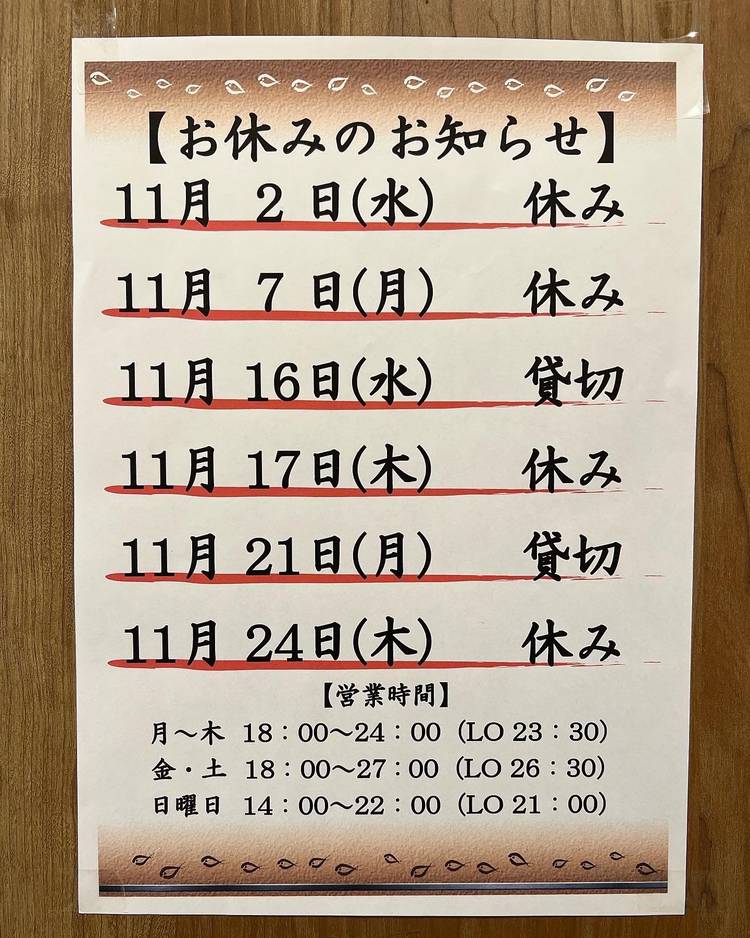 【お休みのお知らせ】
11月 2 日(水) 休み
11月 7 日(月) 休み
11月 16日(水) 貸切
11月 17日(木) 休み
11月 21日(月) 貸切
11月 24日(木) 休み
【営業時間】
月～木 18：00～24：00 (LO 23：30)
金・土 18：00～27：00 (LO 26：30)
日曜日 14：00～22：00 (LO 21：00)